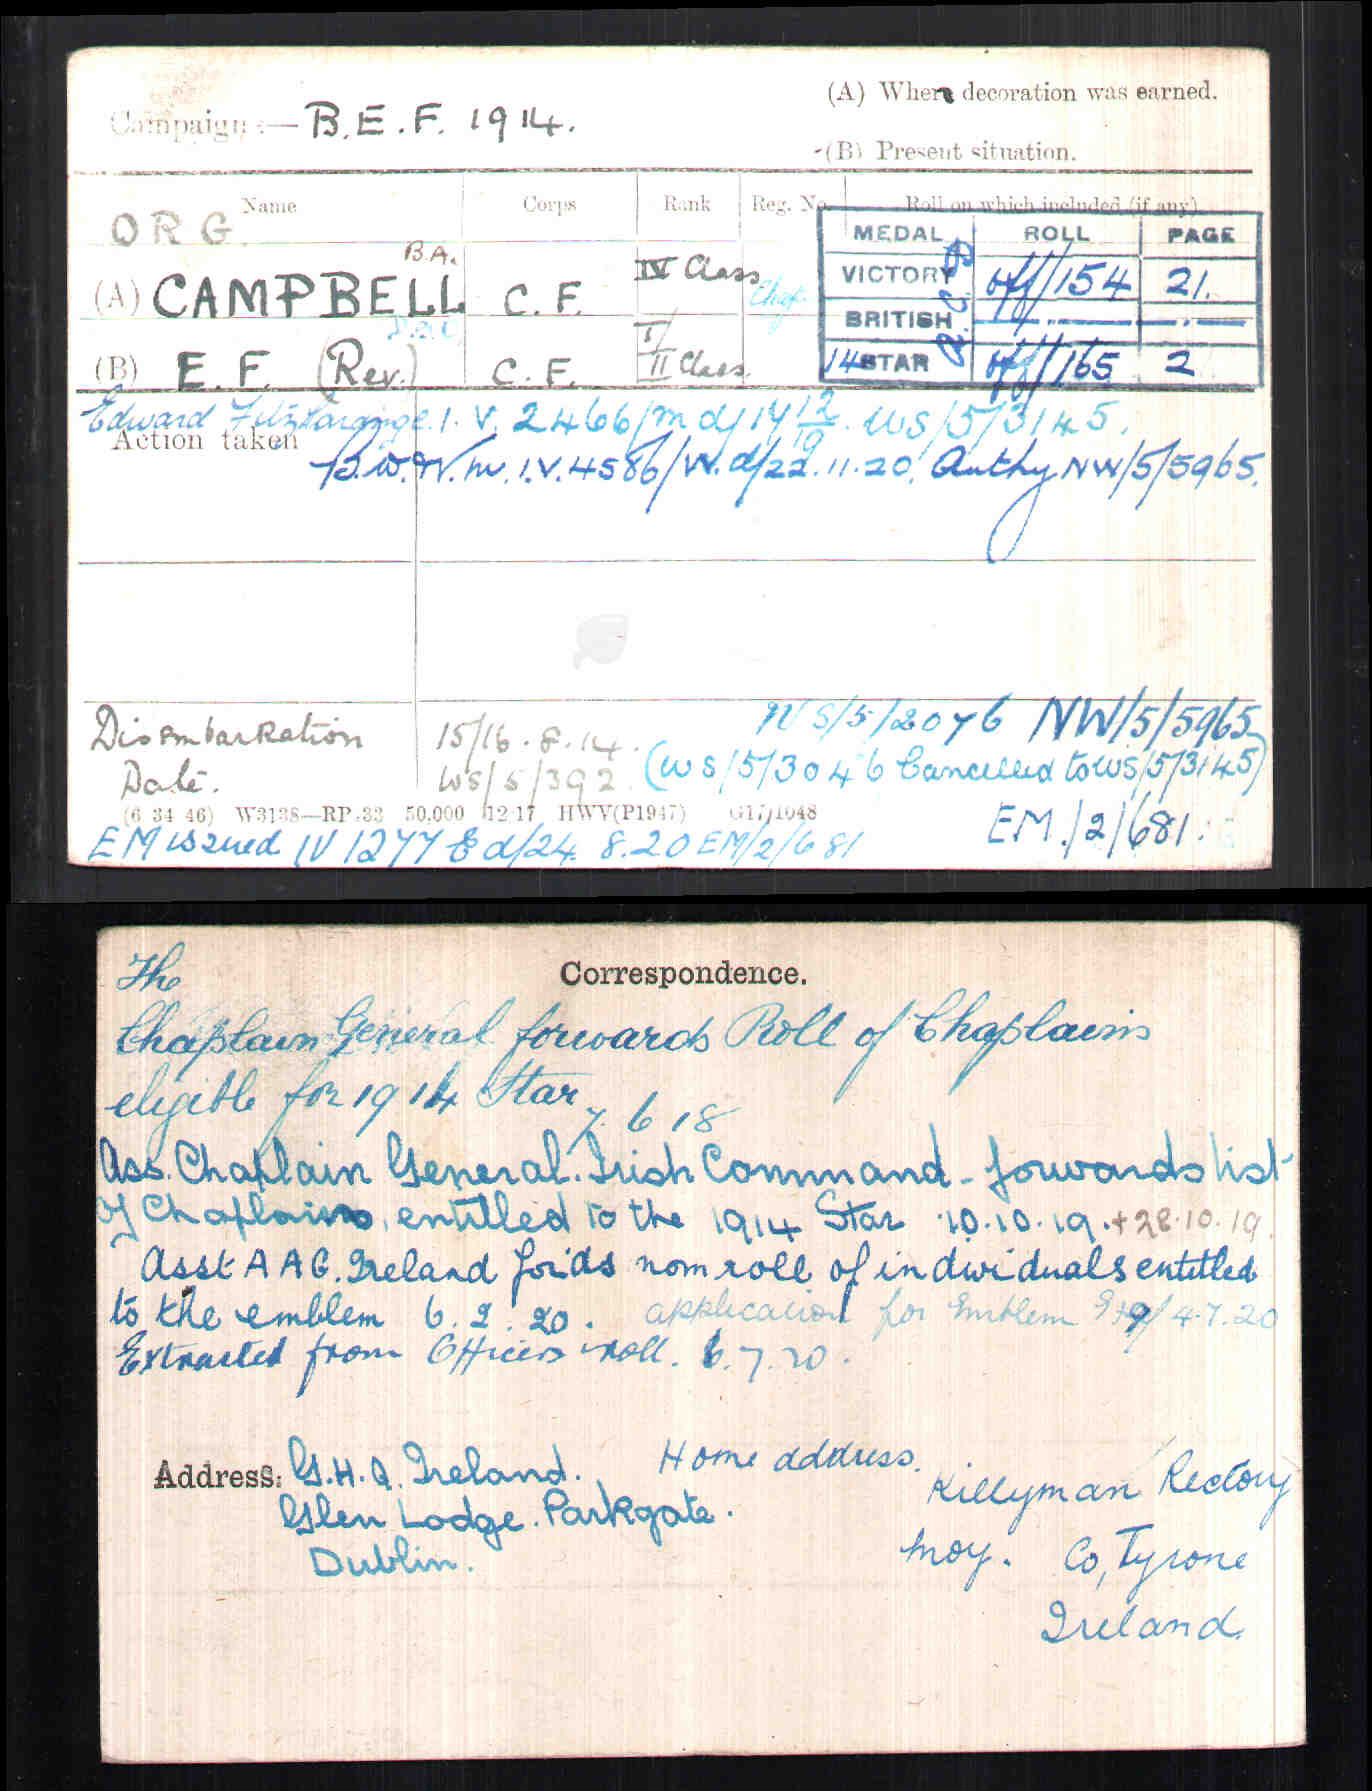 Campaign:— B.E.F. 1914.
(A) Where decoration was earned.
(B) Present situation.
Name Corps Rank Reg. No. Roll on which included (if any)
ORG.
MEDAL ROLL PAGE
B.A.
(A) CAMPBELL C. F. IV Class
VICTORY Off/154 21.
BRITISH —.— —.—
D.S.O
(B) E. F. (Rev.) C. F. II Class
14 STAR Off/165 2
Edward I.V. 2466/ 12/19. WS/5/3145.
Action taken
B.W. & V.M. I.V. 4586/W. d/22.11.20. Authy NW/5/5965.
WS/5/2076 NW/5/5965
Disembarkation 15/16.8.14.
Date. WS/5/392 (WS/5/3046 Cancelled to WS/5/3145)
(6 34 46) W3138—RP 33 50,000 12/17 HWV(P1947) G17/1048
EM./2/681.
EM issued IV 1277 E d/24. 8.20 EM/2/681
Correspondence.
The
Chaplain General forwards Roll of Chaplains
eligible for 1914 Star 7. 6 18
Ass. Chaplain General. Irish Command - forwards list
of Chaplains, entitled to the 1914 Star 10.10.19. + 28.10.19.
Asst AAG. Ireland for'ds nom roll of individuals entitled
to the emblem 6. 2. 20. application for Emblem 4.7.20
Extracted from Officers roll. 6.7.20.
Address: G.H.Q. Ireland. Home address.
Glen Lodge. Parkgate. Killyman Rectory
Dublin. Moy. Co, Tyrone
Ireland.